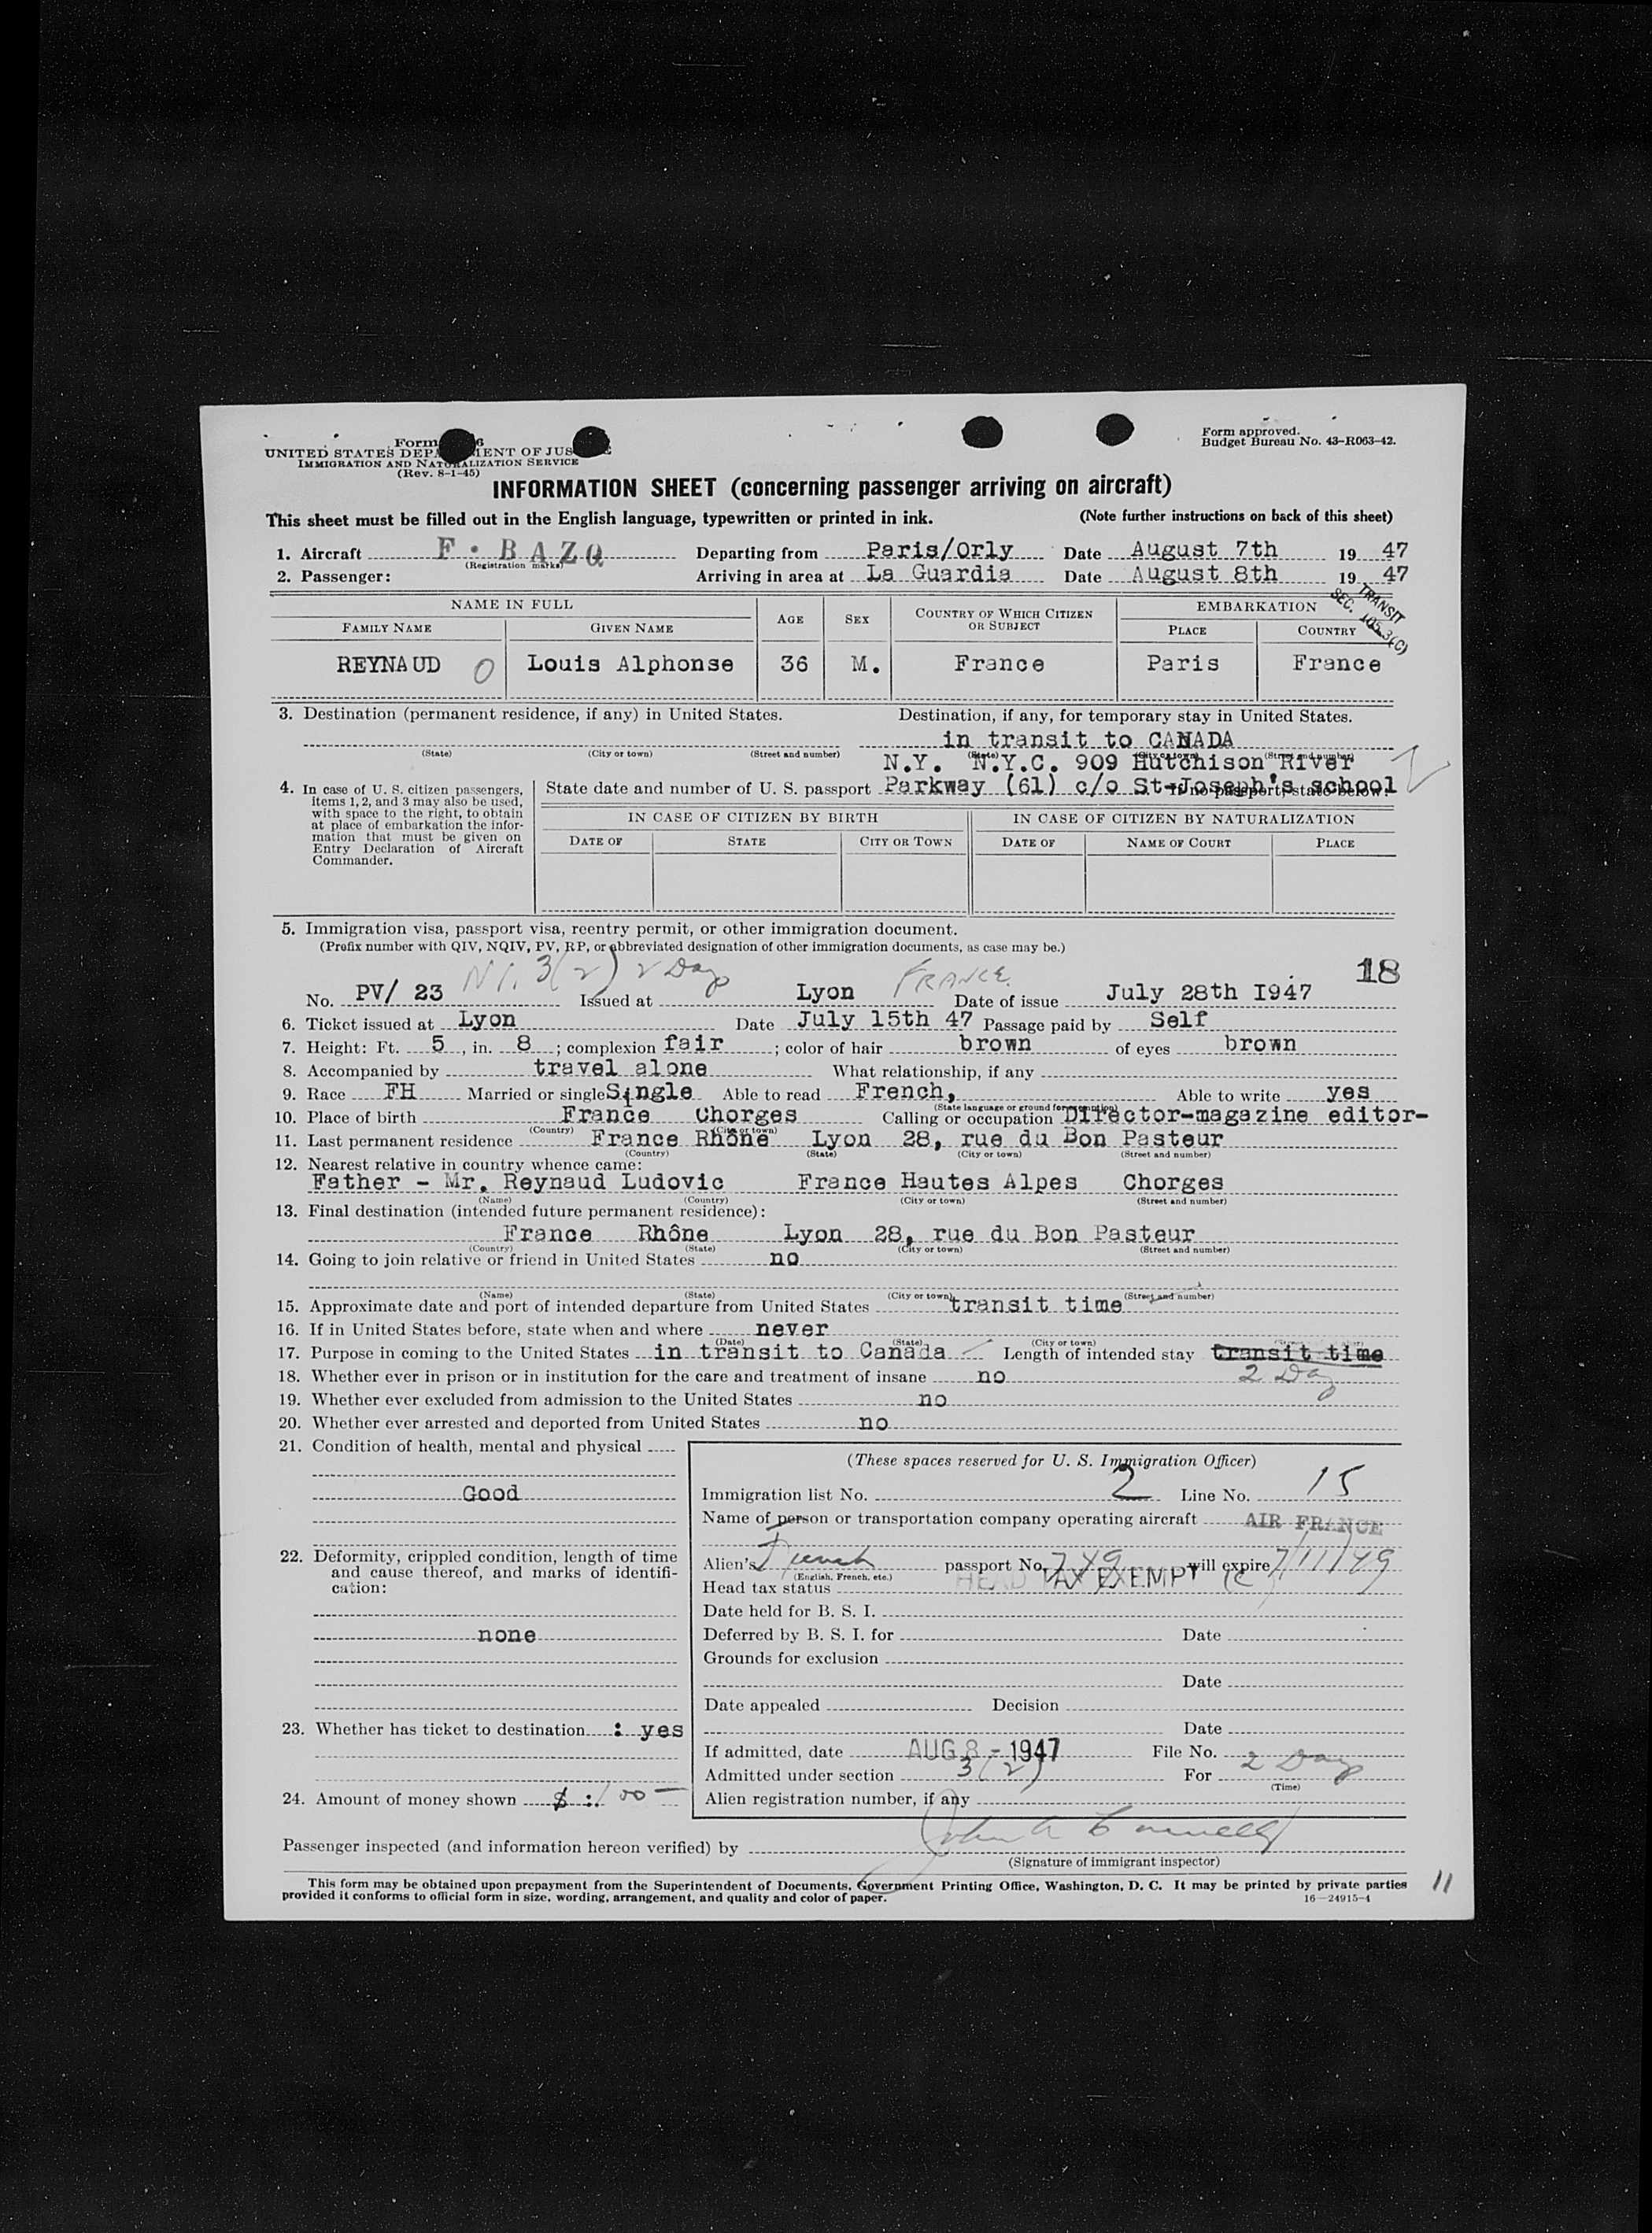 Form 6
UNITED STATES DEPA MENT OF JUS E
IMMIGRATION AND NATURALIZATION SERVICE
(Rev. 8-1-45)
Form approved.
Budget Bureau No. 43-R063-42.
INFORMATION SHEET (concerning passenger arriving on aircraft)
This sheet must be filled out in the English language, typewritten or printed in ink. (Note further instructions on back of this sheet)
1. Aircraft F·BAZQ Departing from Paris/Orly Date August 7th 19 47
(Registration marks)
2. Passenger: Arriving in area at La Guardia Date August 8th 19 47
TRANSIT
SEC. 105.3(C)
NAME IN FULL AGE SEX COUNTRY OF WHICH CITIZEN OR SUBJECT EMBARKATION
FAMILY NAME GIVEN NAME PLACE COUNTRY
REYNAUD O Louis Alphonse 36 M. France Paris France
3. Destination (permanent residence, if any) in United States. Destination, if any, for temporary stay in United States.
in transit to CANADA
(State) (City or town) (Street and number) (State) (City or town) (Street and number)
N.Y. N.Y.C. 909 Hutchison River
4. In case of U. S. citizen passengers, items 1, 2, and 3 may also be used, with space to the right, to obtain at place of embarkation the information that must be given on Entry Declaration of Aircraft Commander.
State date and number of U. S. passport Parkway (61) c/o St-Joseph's school
If no passport, state below:
IN CASE OF CITIZEN BY BIRTH IN CASE OF CITIZEN BY NATURALIZATION
DATE OF STATE CITY OR TOWN DATE OF NAME OF COURT PLACE
5. Immigration visa, passport visa, reentry permit, or other immigration document.
(Prefix number with QIV, NQIV, PV, RP, or abbreviated designation of other immigration documents, as case may be.)
N.I. 3(2) 2 Day FRANCE 18
No. PV/ 23 Issued at Lyon Date of issue July 28th I947
6. Ticket issued at Lyon Date July 15th 47 Passage paid by Self
7. Height: Ft. 5, in. 8; complexion fair; color of hair brown of eyes brown
8. Accompanied by travel alone What relationship, if any
9. Race FH Married or single Single Able to read French, Able to write yes
(State language or ground for exemption)
10. Place of birth France Chorges Calling or occupation Director-magazine editor-
(Country) (City or town)
11. Last permanent residence France Rhône Lyon 28, rue du Bon Pasteur
(Country) (State) (City or town) (Street and number)
12. Nearest relative in country whence came:
Father - Mr. Reynaud Ludovic France Hautes Alpes Chorges
(Name) (Country) (City or town) (Street and number)
13. Final destination (intended future permanent residence):
France Rhône Lyon 28, rue du Bon Pasteur
(Country) (State) (City or town) (Street and number)
14. Going to join relative or friend in United States no
(Name) (State) (City or town) (Street and number)
15. Approximate date and port of intended departure from United States transit time
16. If in United States before, state when and where never
(Date) (State) (City or town)
17. Purpose in coming to the United States in transit to Canada Length of intended stay transit time
18. Whether ever in prison or in institution for the care and treatment of insane no 2 Day
19. Whether ever excluded from admission to the United States no
20. Whether ever arrested and deported from United States no
21. Condition of health, mental and physical
Good
22. Deformity, crippled condition, length of time and cause thereof, and marks of identification:
none
23. Whether has ticket to destination : yes
24. Amount of money shown $ : 100-
(These spaces reserved for U. S. Immigration Officer)
Immigration list No. 2 Line No. 15
Name of person or transportation company operating aircraft AIR FRANCE
Alien's French passport No. 749 will expire 7/11/49
(English, French, etc.)
Head tax status HEAD TAX EXEMPT (C
Date held for B. S. I.
Deferred by B. S. I. for Date
Grounds for exclusion
Date
Date appealed Decision
Date
If admitted, date AUG 8 - 1947 File No.
Admitted under section 3(2) For 2 Day
(Time)
Alien registration number, if any
Passenger inspected (and information hereon verified) by
(Signature of immigrant inspector)
This form may be obtained upon prepayment from the Superintendent of Documents, Government Printing Office, Washington, D. C. It may be printed by private parties
provided it conforms to official form in size, wording, arrangement, and quality and color of paper. 16—24915-4
11